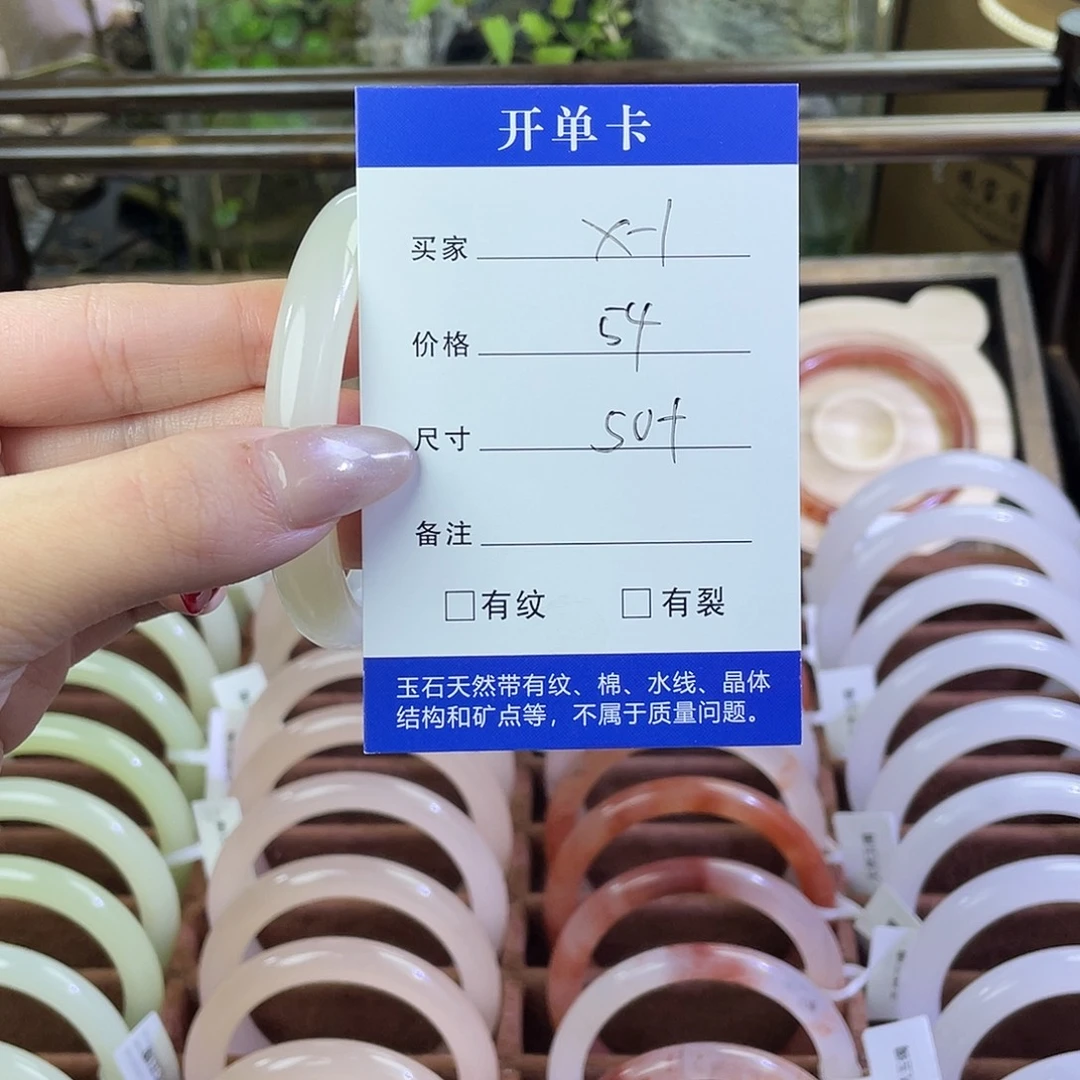 开单卡
买家 x-1
价格 54
尺寸 50+
备注
□有纹 □有裂
玉石天然带有纹、棉、水线、晶体
结构和矿点等，不属于质量问题。